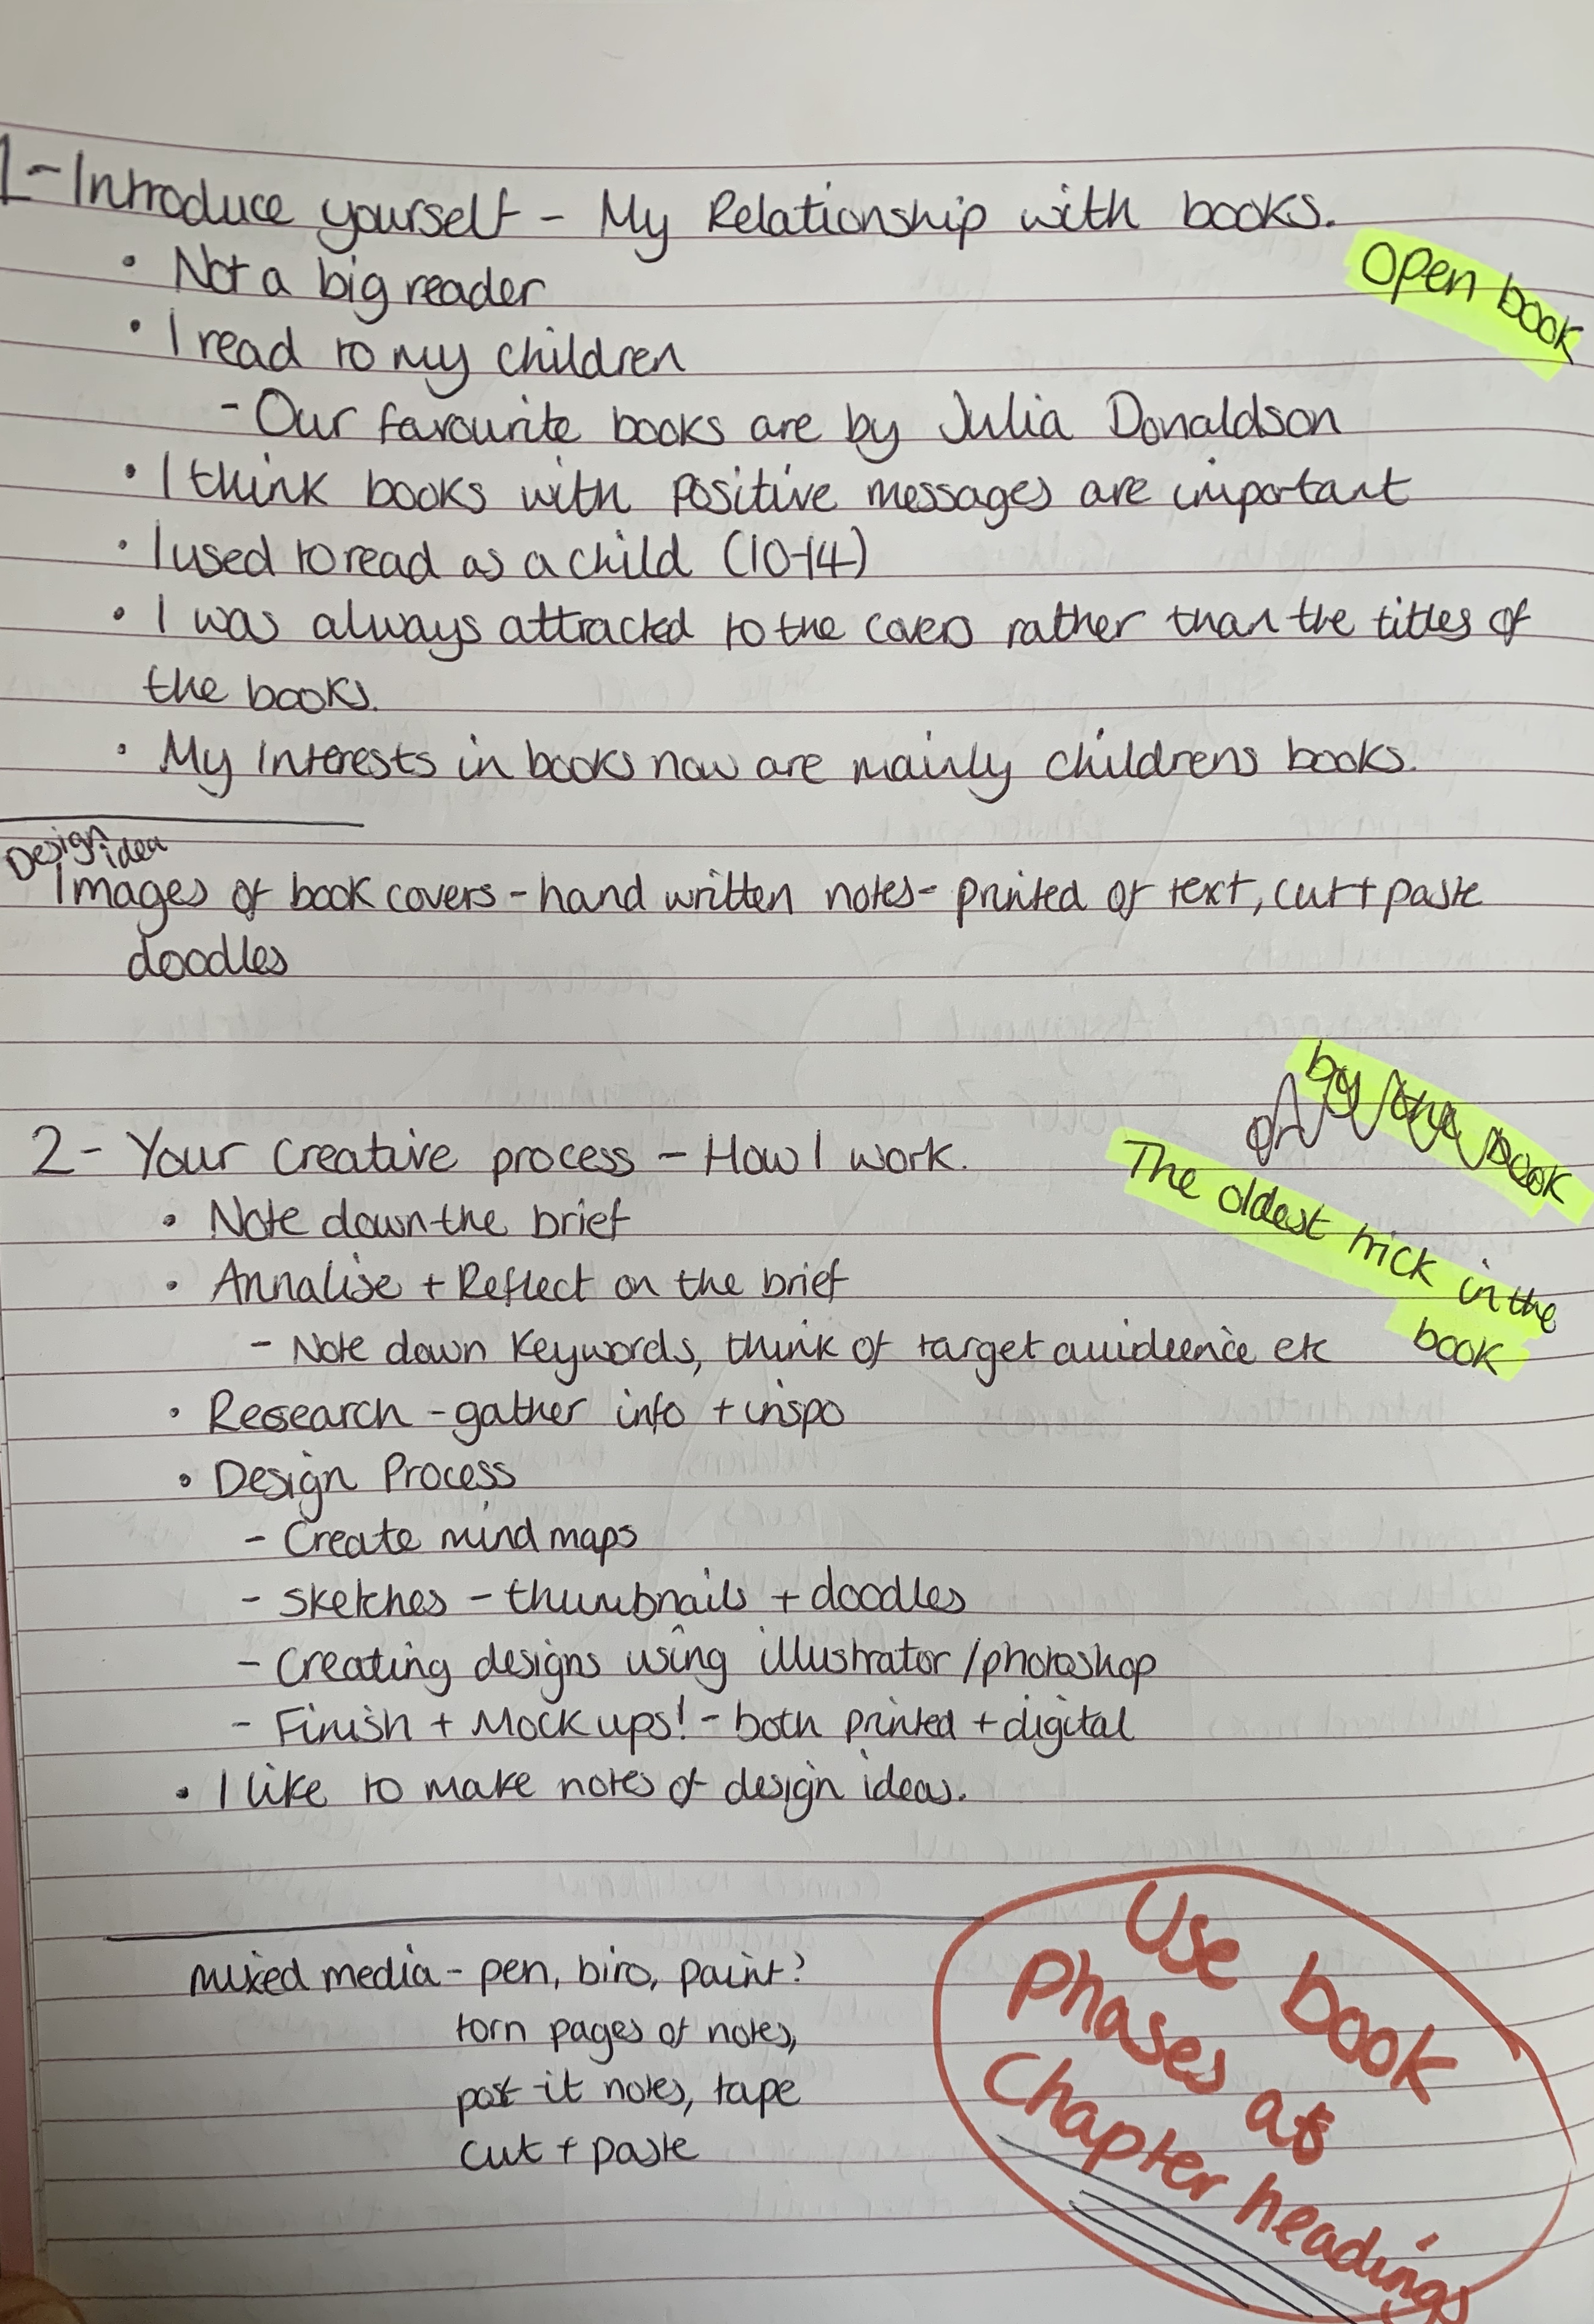 1 - Introduce yourself - My Relationship with books.
Open book
• Not a big reader
• I read to my children
- Our favourite books are by Julia Donaldson
• I think books with positive messages are important
• I used to read as a child (10-14)
• I was always attracted to the covers rather than the titles of
the books.
• My Interests in books now are mainly childrens books.
Design idea
Images of book covers - hand written notes - printed of text, cut + paste
doodles
by the book
or
2 - Your Creative process - How I work.
The oldest trick in the
book
• Note down the brief
• Annalise + Reflect on the brief
- Note down Keywords, think of target auidience etc
• Research - gather info + inspo
• Design Process
- Create mind maps
- Sketches - thumbnails + doodles
- Creating designs using illustrator/photoshop
- Finish + Mock ups! - both printed + digital
• I like to make notes of design ideas.
mixed media - pen, biro, paint?
torn pages of notes,
post-it notes, tape
cut + paste
Use book
phases as
Chapter headings